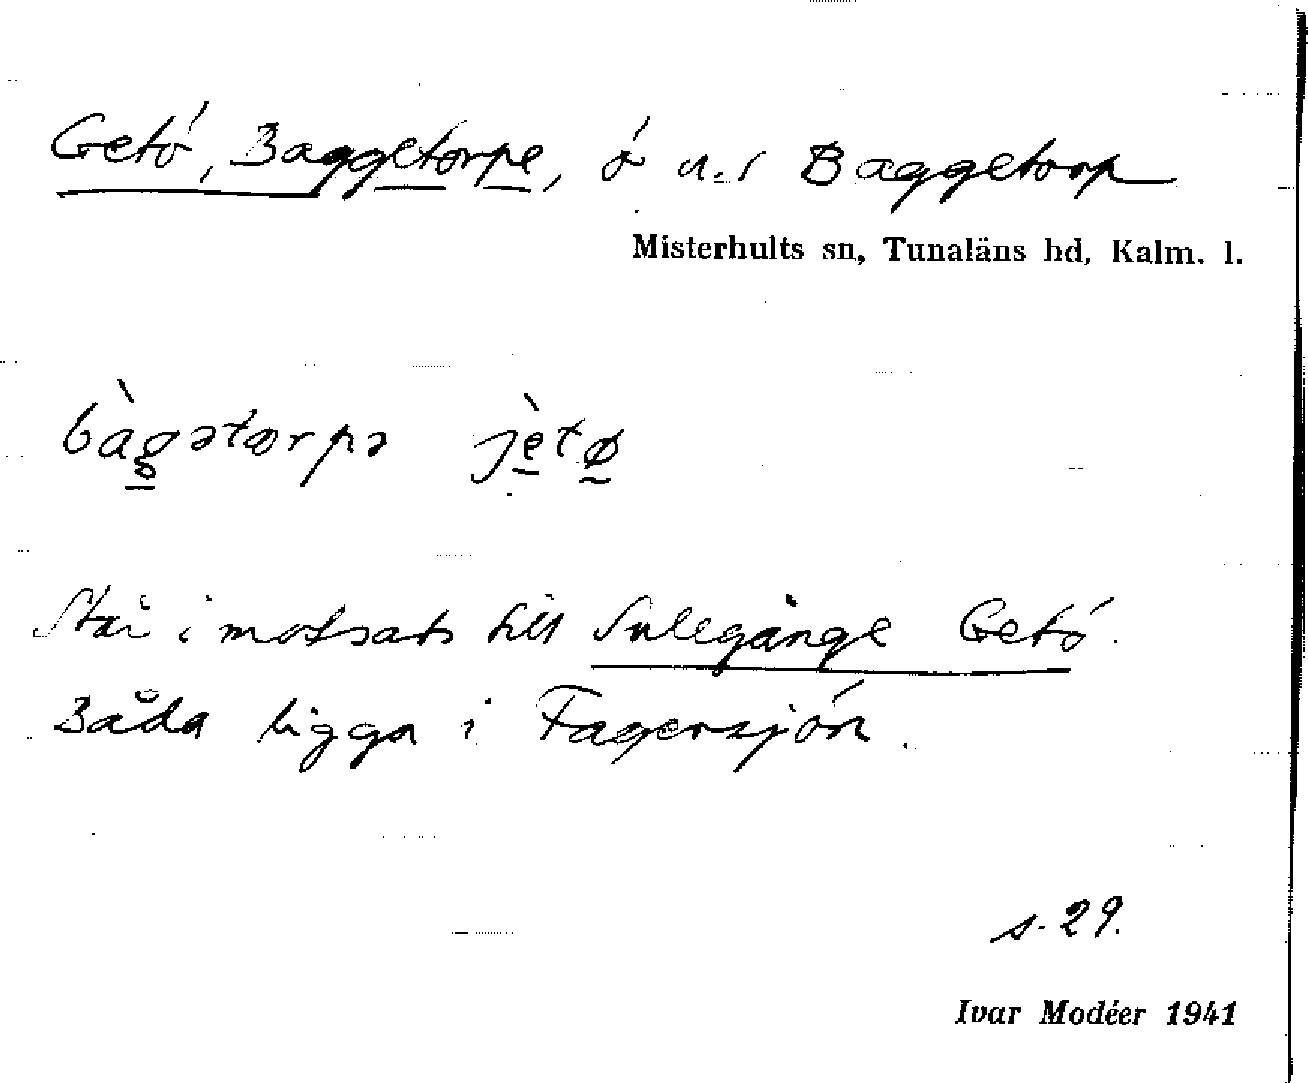 Getö, Baggetorpe, ö u.r Baggetorp
Misterhults sn, Tunaläns hd, Kalm. l.
bàgətorpə jètø
Står i motsats till Sulegånge Getö.
Båda ligga i Fagersjön.
s. 29.
Ivar Modéer 1941